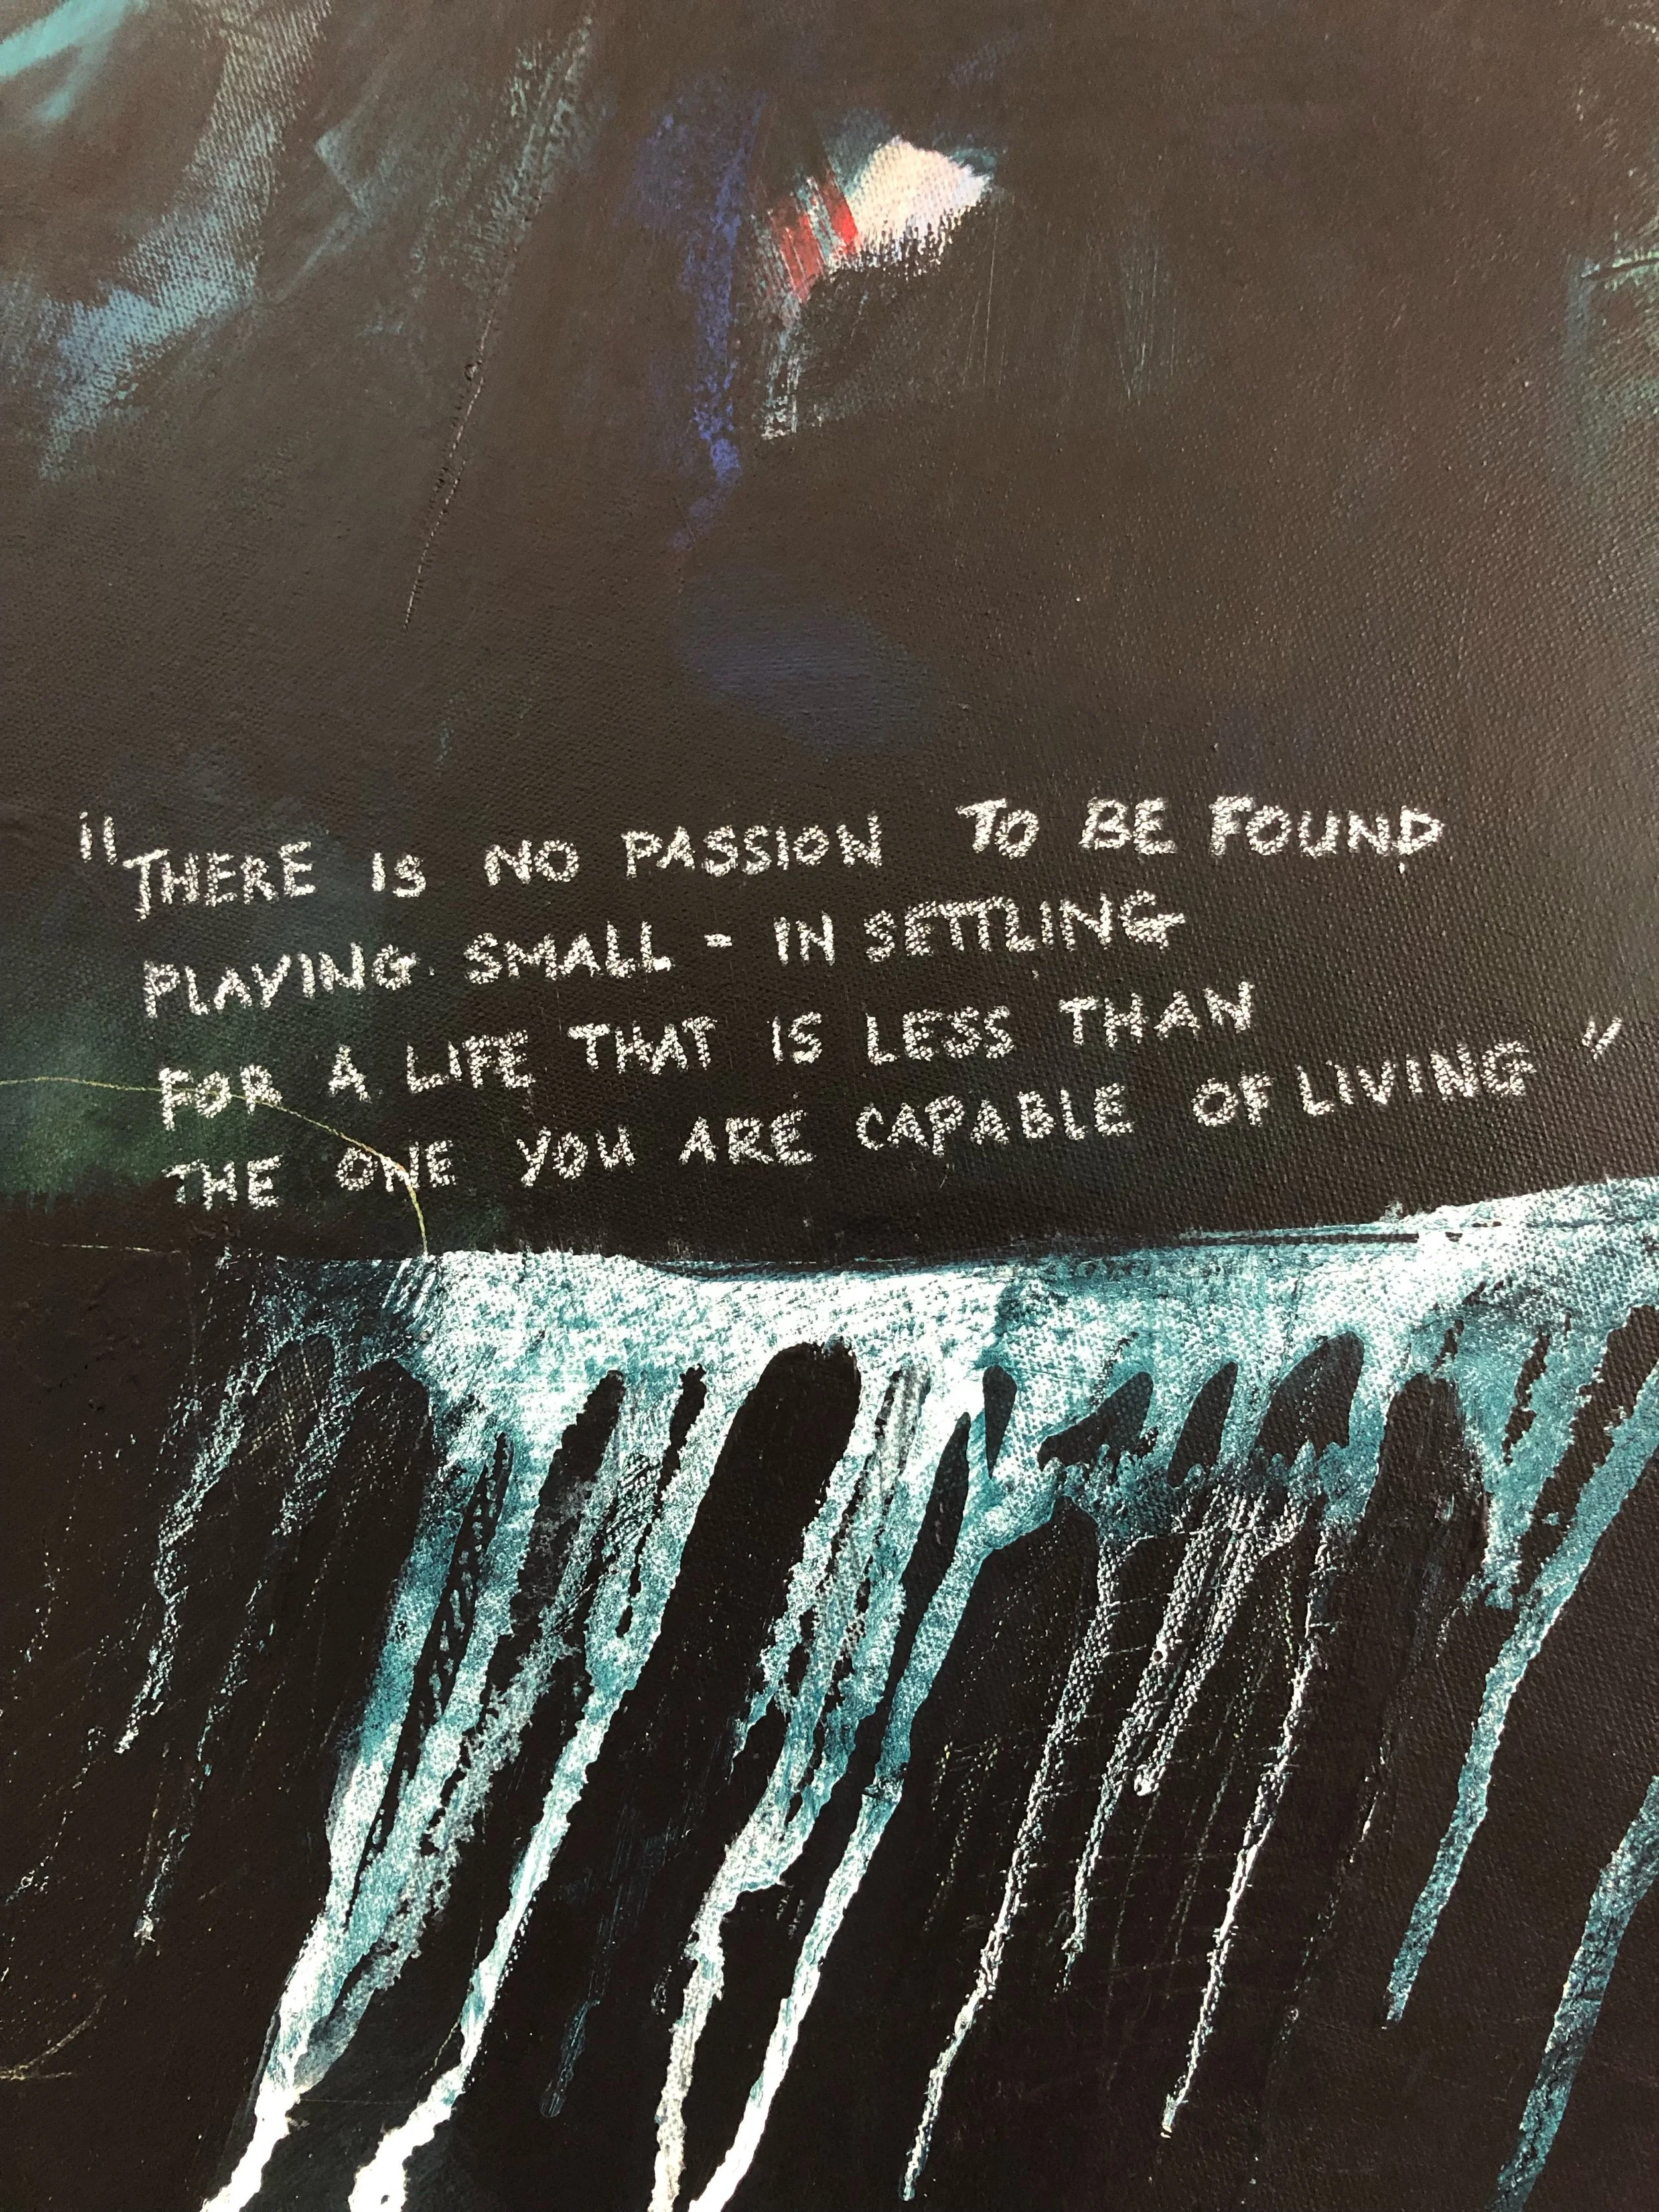 "THERE IS NO PASSION TO BE FOUND
PLAYING SMALL - IN SETTLING
FOR A LIFE THAT IS LESS THAN
THE ONE YOU ARE CAPABLE OF LIVING"